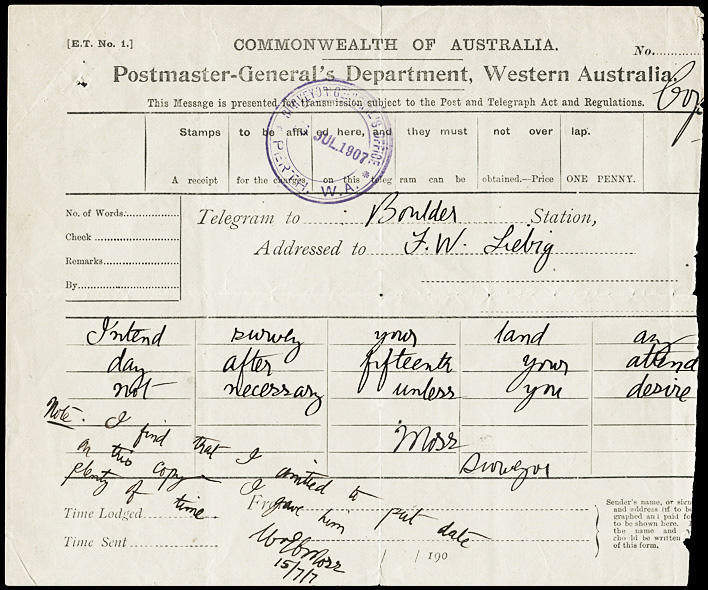 [E.T. No. 1.]
COMMONWEALTH OF AUSTRALIA.
No.
Postmaster-General's Department, Western Australia.
This Message is presented for transmission subject to the Post and Telegraph Act and Regulations.
Copy
Stamps to be affixed here, and they must not over lap.
SURVEYOR GENERAL'S OFFICE
JUL.1907
PERTH. W.A.
A receipt for the charges on this telegram can be obtained.—Price ONE PENNY.
No. of Words:
Check
Remarks
By
Telegram to Boulder Station,
Addressed to F. W. Liebig
Intend survey your land any
day after fifteenth your attend
not necessary unless you desire
Moss
Surveyor
Note. I find that I omitted to put date
on this copy I gave him
plenty of time
WJMoss
15/7/7
Time Lodged
From
Time Sent
/ / 190
Sender's name, or
and address (if to be
graphed and paid for
to be shown here.
the name and
should be written
of this form,